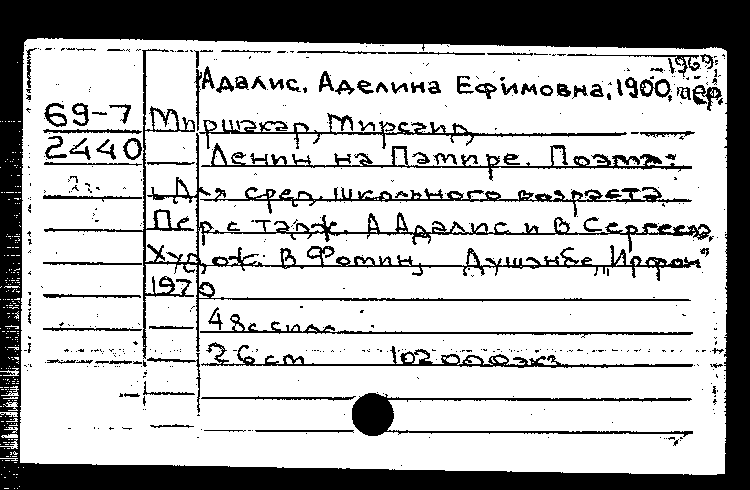 1969
Адалис, Аделина Ефимовна, 1900, пер.
69-7 Миршакар, Мирсаид
2440 Ленин на Памире. Поэма:
2г. Для сред. школьного возраста
Пер. с тадж. А. Адалис и В. Сергеева
Худож. В. Фотин, Душанбе, "Ирфон"
1970
48 с с илл.
26 cm 102 000 экз